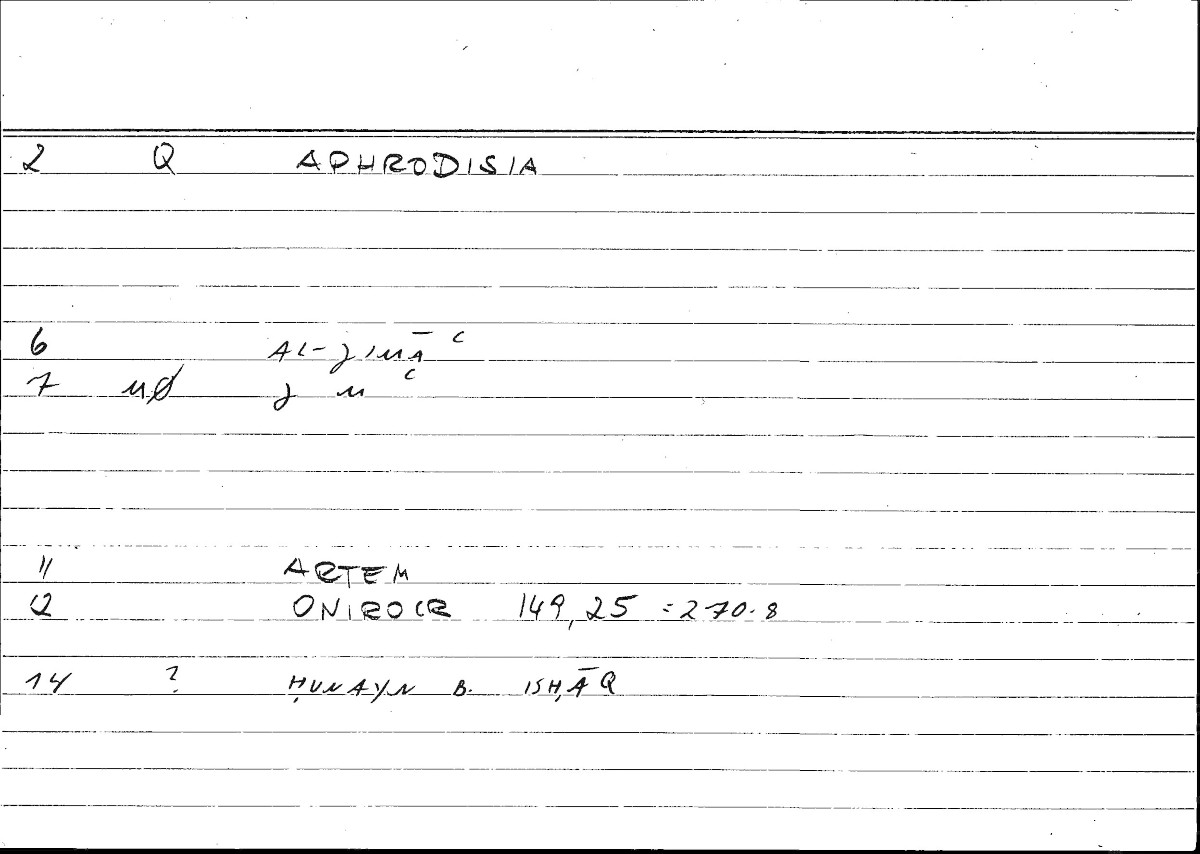 2 Q APHRODISIA
6 AL-JIMĀʿ
7 MØ J M ʿ
11 ARTEM
12 ONIROCR 149,25 = 270.8
14 ? ḤUNAYN B. ISḤĀQ